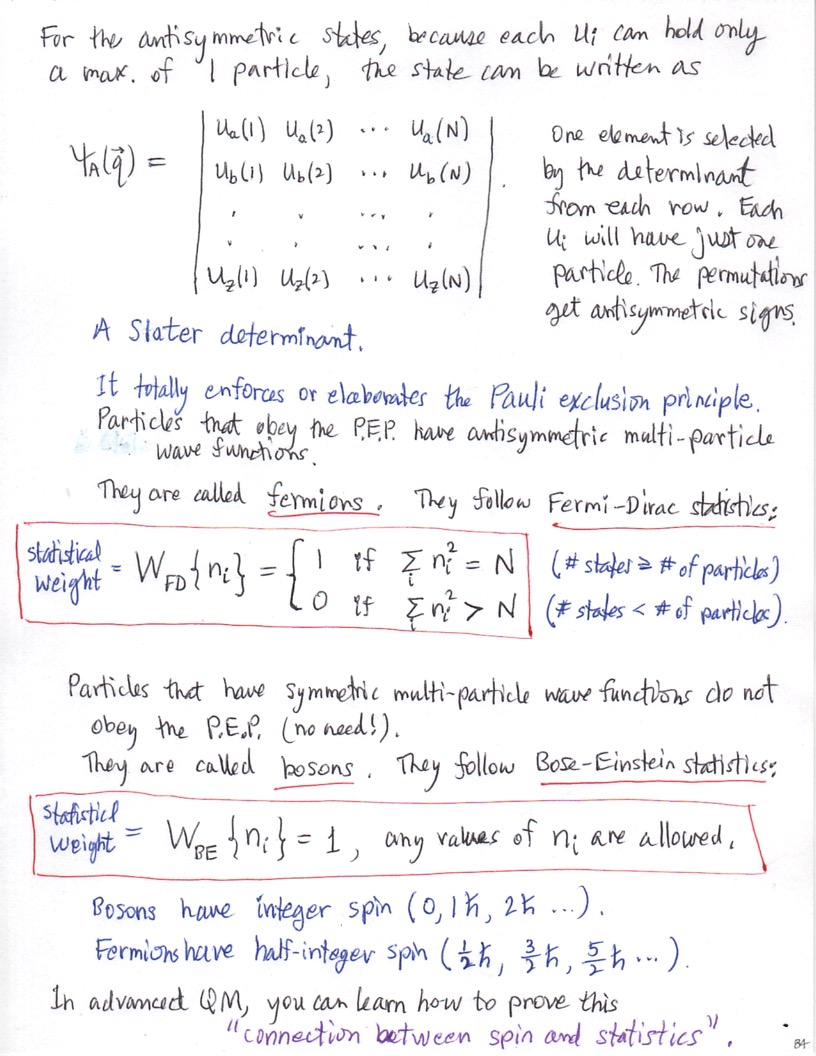 For the antisymmetric states, because each Ui can hold only
a max. of 1 particle, the state can be written as
Ψ_A(q⃗) = | Ua(1) Ua(2) ··· Ua(N) |
| Ub(1) Ub(2) ··· Ub(N) |
| . . ... . |
| . . ... . |
| Uz(1) Uz(2) ··· Uz(N) | .
One element is selected
by the determinant
from each row. Each
Ui will have just one
particle. The permutations
get antisymmetric signs.
A Slater determinant.
It totally enforces or elaborates the Pauli exclusion principle.
Particles that obey the P.E.P. have antisymmetric multi-particle
wave functions.
They are called fermions. They follow Fermi-Dirac statistics:
statistical
weight = W_FD{n_i} = { 1 if Σ_i n_i² = N (# states ≥ # of particles)
0 if Σ_i n_i² > N (# states < # of particles).
Particles that have symmetric multi-particle wave functions do not
obey the P.E.P. (no need!).
They are called bosons. They follow Bose-Einstein statistics:
statisticl
weight = W_BE{n_i} = 1, any values of n_i are allowed.
Bosons have integer spin (0, 1ħ, 2ħ ...).
Fermions have half-integer spin (½ħ, 3/2 ħ, 5/2 ħ ...).
In advanced QM, you can learn how to prove this
"connection between spin and statistics".
84